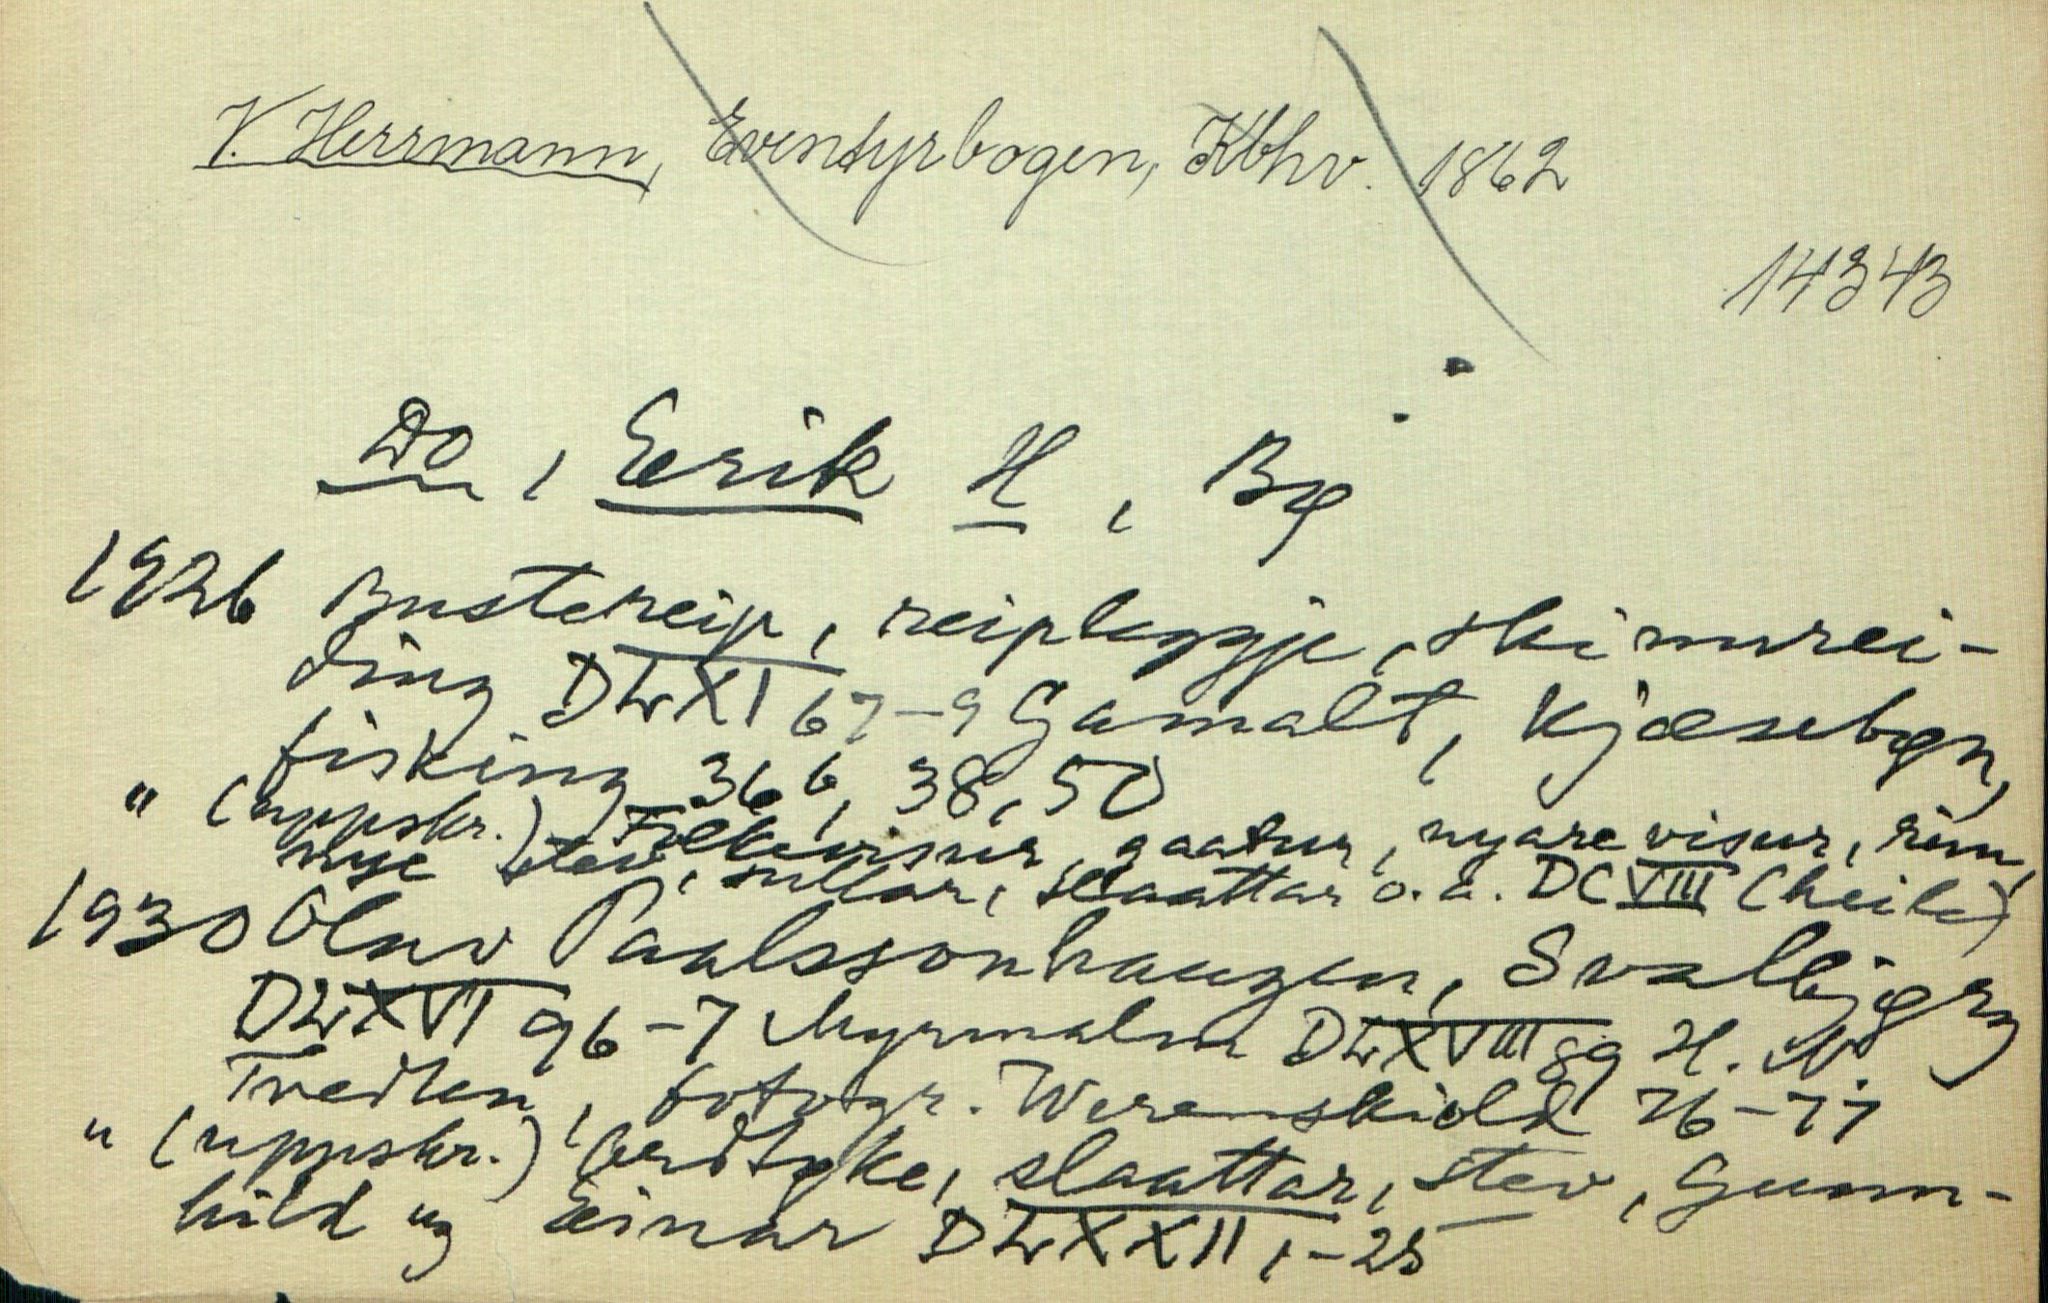 V. Herrmann, Eventyrbogen, Kbhv. 1862
14343
Do, Eerik H, Bø
1926 Bustereip, reipleggje, skinnrei-
ding DLXI 67-9 Gamalt, Kjæsebøn,
fisking 36 6, 38, 50
" (uppskr.) Folkevisur, gaatur, nyare visur, rim,
nye stev, sullar, slaattar o.a. DCVIII (heile)
1930 Olav Paalssonhaugen, Svalbjørg
DLXVI 96-7 Myrmalm DLXVIII 89 H. N.
Tvedten, fotogr. Werenskiold 76-77
" (uppskr.) Ordtøke, slaattar, stev, Gunn-
hild og Einar DLXXII 1-25